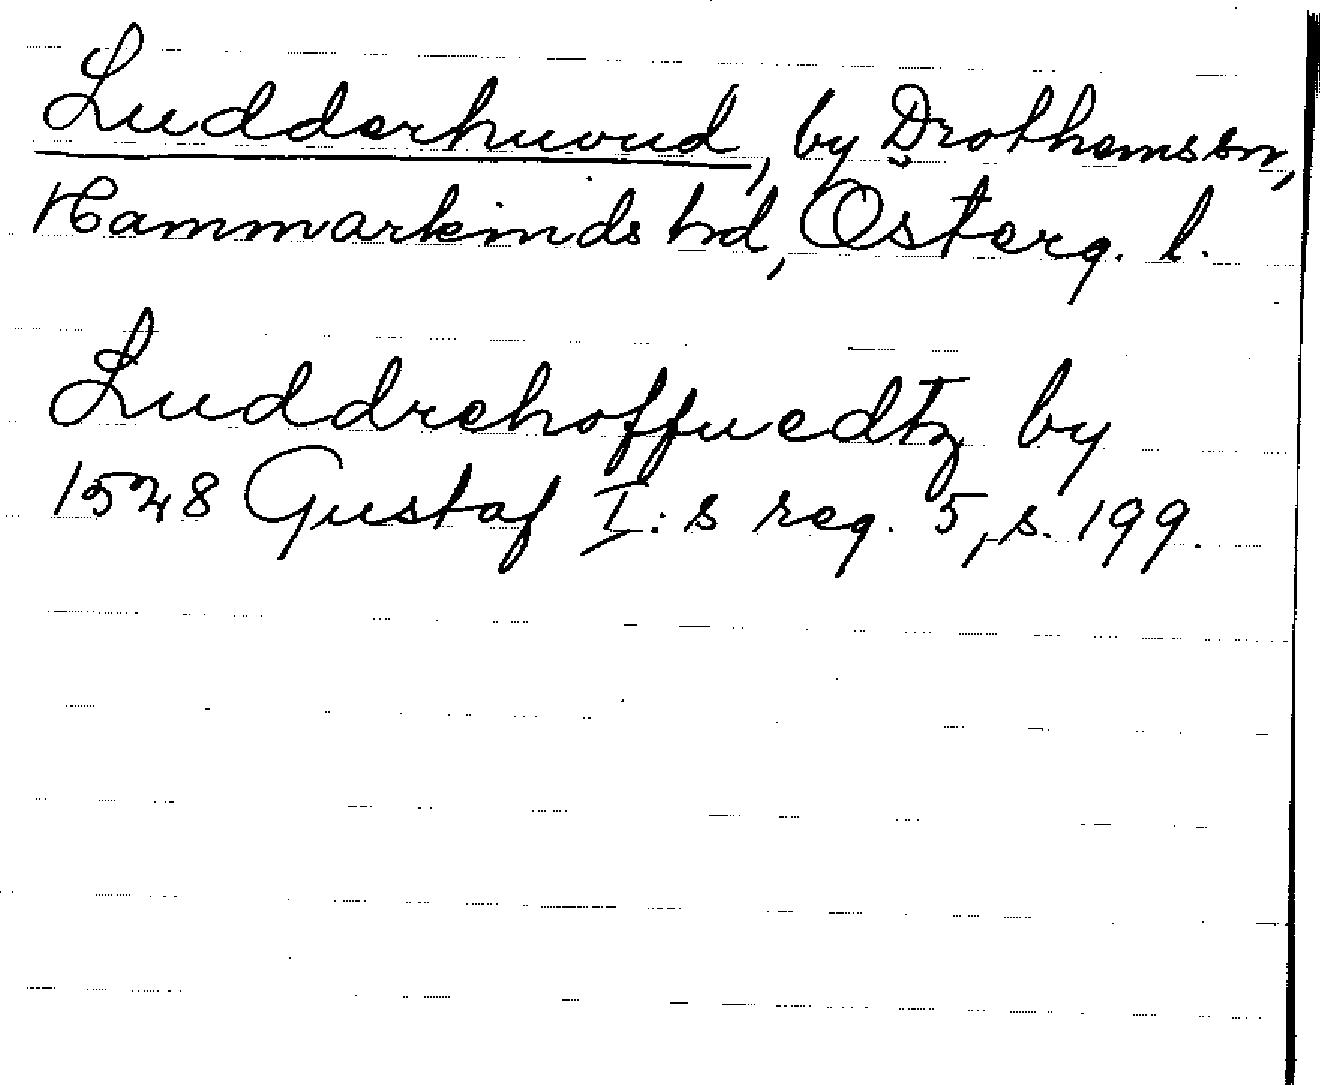 Ludderhuvud, by Drothems sn,
Hammarkinds hd, Österg. l.
Luddrehoffuedtz by
1528 Gustaf I:s reg. 5, s. 199.